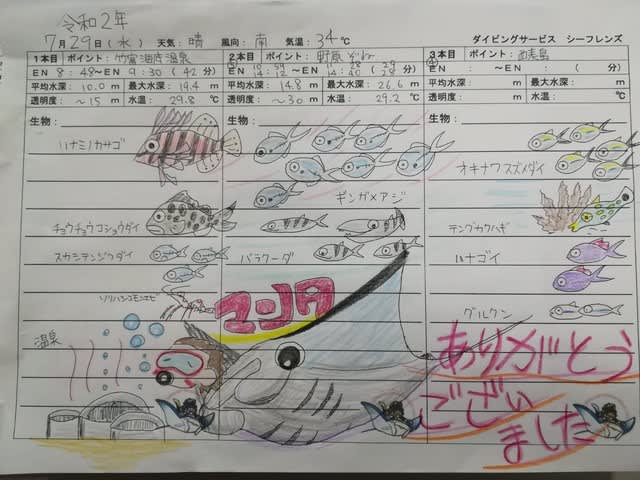 令和2年
7月29日(水) 天気:晴 風向:南 気温:34℃ ダイビングサービス シーフレンズ
1本目 ポイント:竹富海底温泉
EN 8:48~EN 9:30 (42分)
平均水深: 10.0 m 最大水深: 19.4 m
透明度: ~15 m 水温: 29.8 ℃
生物:
ハナミノカサゴ
チョウチョウコショウダイ
スカシテンジクダイ
ソリハシコモンエビ
温泉
2本目 ポイント:野原
平均水深: 14.8 m 最大水深: 26.6 m
透明度: ~30 m 水温: 29.2 ℃
生物:
ギンガメアジ
バラクーダ
マンタ
3本目 ポイント:西表島
EN : ~EN : ( 分)
平均水深: m 最大水深: m
透明度: m 水温: ℃
生物:
オキナワスズメダイ
テングカワハギ
ハナゴイ
グルクン
ありがとう
ござい
ました